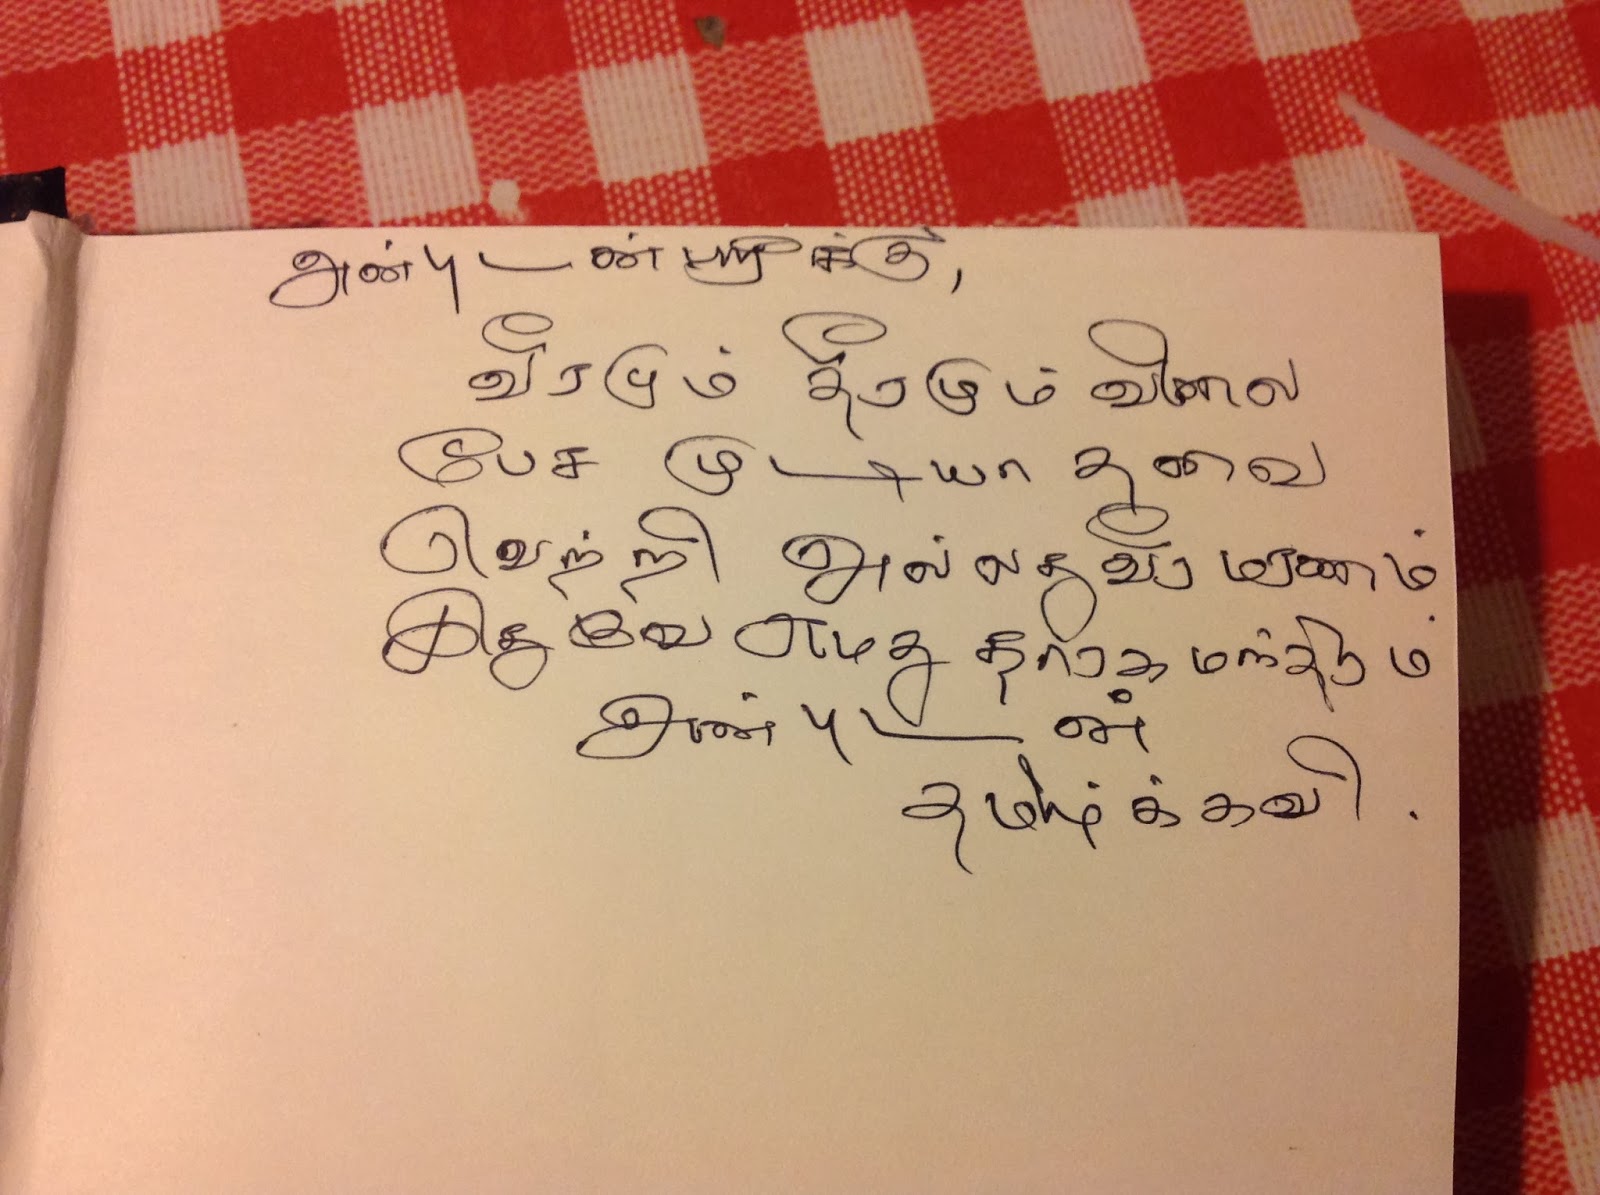 அன்புடன்
வீரமும் தீரமும் விலை
பேச முடியாதவை
வெற்றி அல்லது வீர மரணம்
இதுவே எமது தாரக மந்திரம்
அன்புடன்
தமிழ்க்கவி.